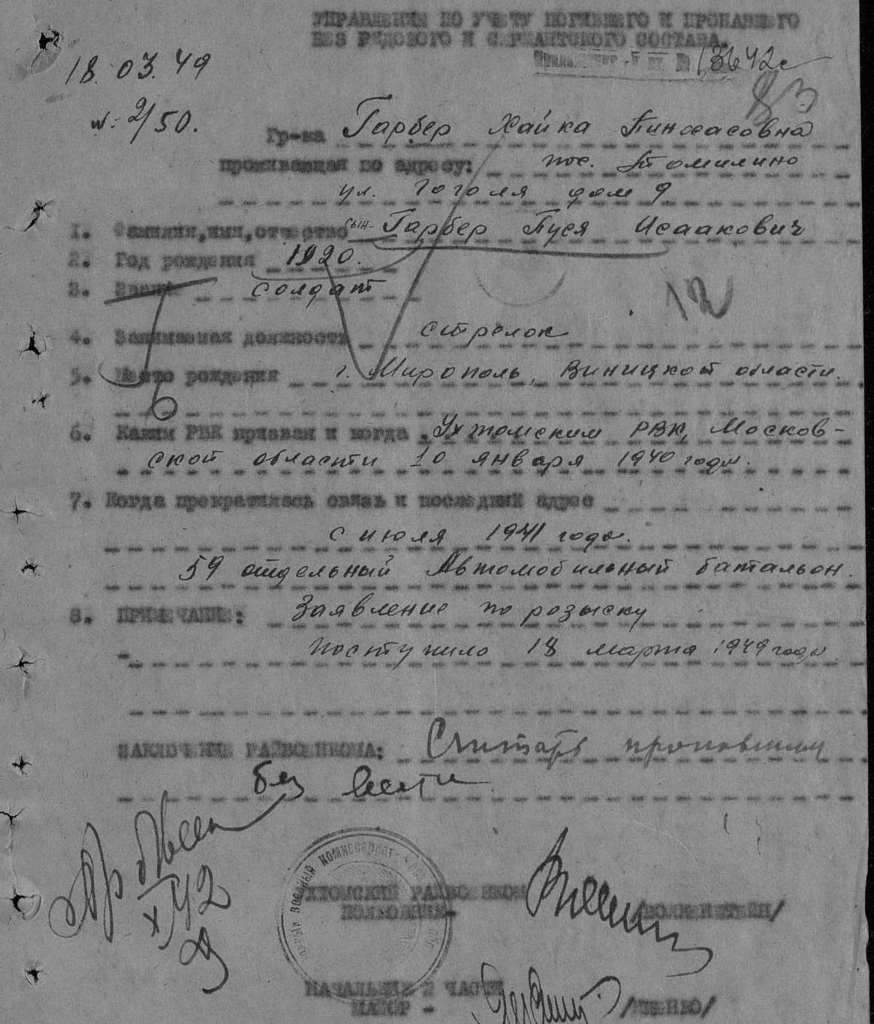 УПРАВЛЕНИЕ ПО УЧЕТУ ПОГИБШЕГО И ПРОПАВШЕГО
БЕЗ РЯДОВОГО И СЕРЖАНТСКОГО СОСТАВА.
18.03.49
13642с
83
№: 2/50.
Гр-ка Гарбер Хайка Пинхасовна
проживающая по адресу: пос. Томилино
ул. Гоголя дом 9
1. Фамилия, имя, отчество сын- Гарбер Пуся Исаакович
2. Год рождения 1920.
3. Звание солдат
12
4. Занимаемая должность стрелок
5. Место рождения г. Мирополь, Виницкой области.
6. Каким РВК призван и когда Ухтомским РВК, Москов-
ской области 10 января 1940 года.
7. Когда прекратилась связь и последний адрес
с июля 1941 года.
59 отдельный Автомобильный батальон.
8. ПРИМЕЧАНИЕ: Заявление по розыску
поступило 18 марта 1949 года
ЗАКЛЮЧЕНИЕ РАЙВОЕНКОМА: Считать пропавшим
без вести
42
УХТОМСКИЙ РАЙВОЕНКОМ
ПОЛКОВНИК- /ВОЛКЕНШТЕЙН/
НАЧАЛЬНИК 2 ЧАСТИ
МАЙОР -